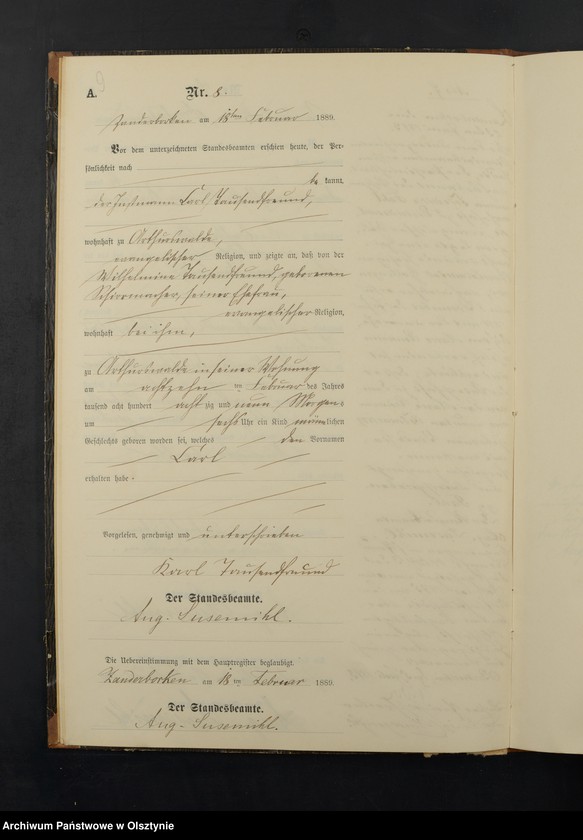 A.
Nr. 8.
Zanderborken am 18ten Februar 1889.
Vor dem unterzeichneten Standesbeamten erschien heute, der Per-
sönlichkeit nach
be kannt,
der Instmann Carl Tausendfreund,
wohnhaft zu Arthurswalde,
evangelischer Religion, und zeigte an, daß von der
Wilhelmine Tausendfreund, geborenen
Schirrmacher, seiner Ehefrau,
evangelischer Religion,
wohnhaft bei ihm,
zu Arthurswalde in seiner Wohnung
am achtzehn ten Februar des Jahres
tausend acht hundert acht zig und neun Morgens
um sechs Uhr ein Kind männlichen
Geschlechts geboren worden sei, welches den Vornamen
Carl
erhalten habe.
Vorgelesen, genehmigt und unterschrieben
Karl Tausendfreund
Der Standesbeamte.
Aug. Susemihl.
Die Uebereinstimmung mit dem Hauptregister beglaubigt.
Zanderborken am 18 ten Februar 1889.
Der Standesbeamte.
Aug. Susemihl.
Archiwum Państwowe w Olsztynie